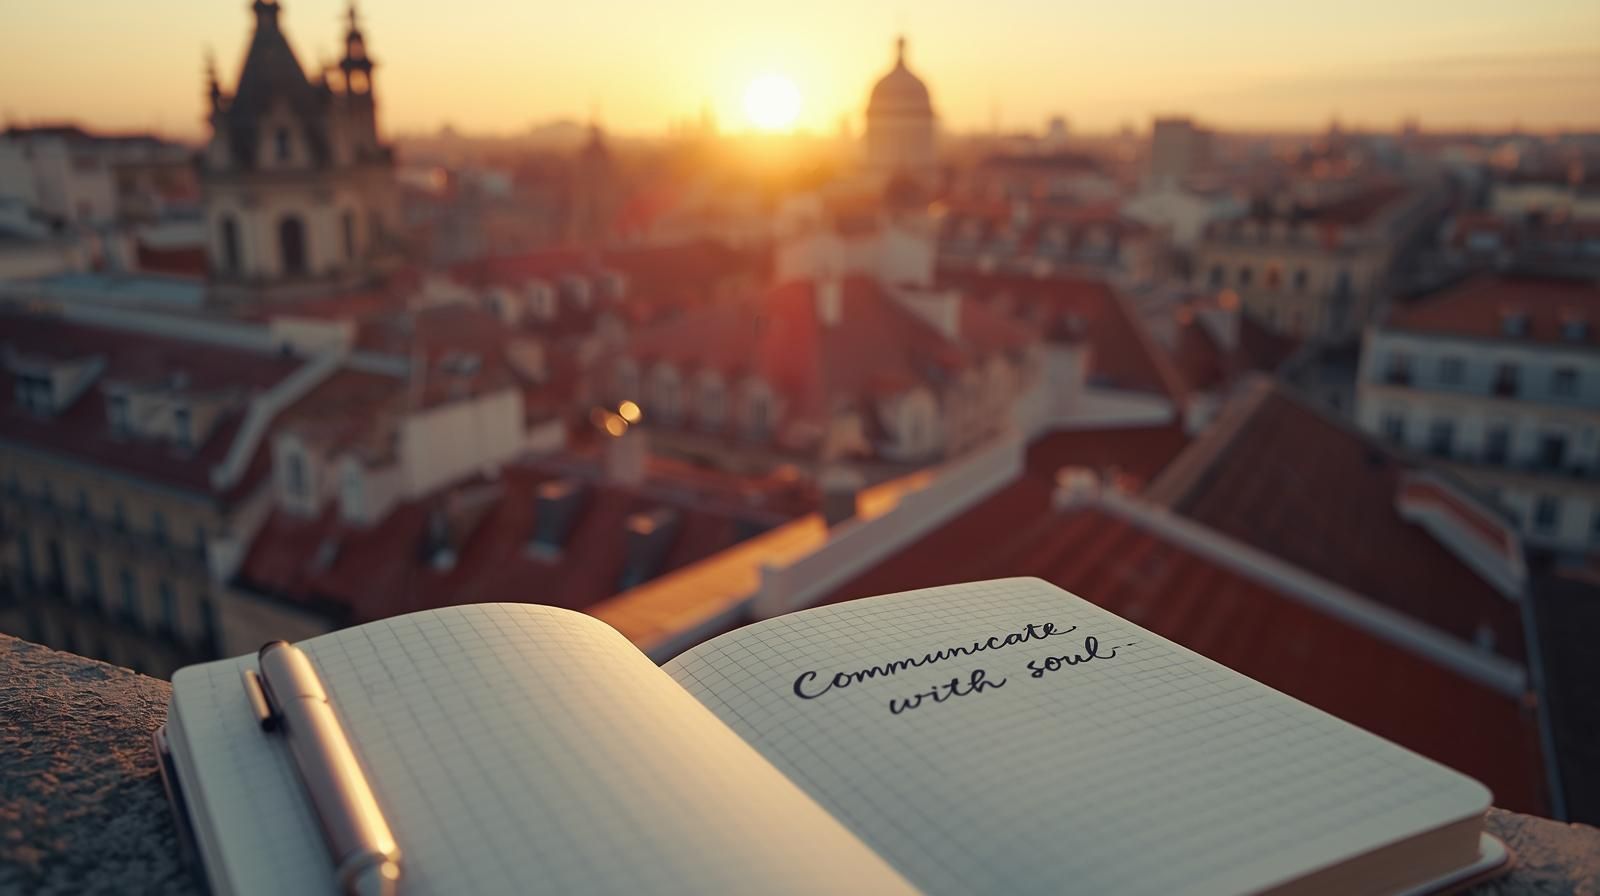 Communicate
with soul...